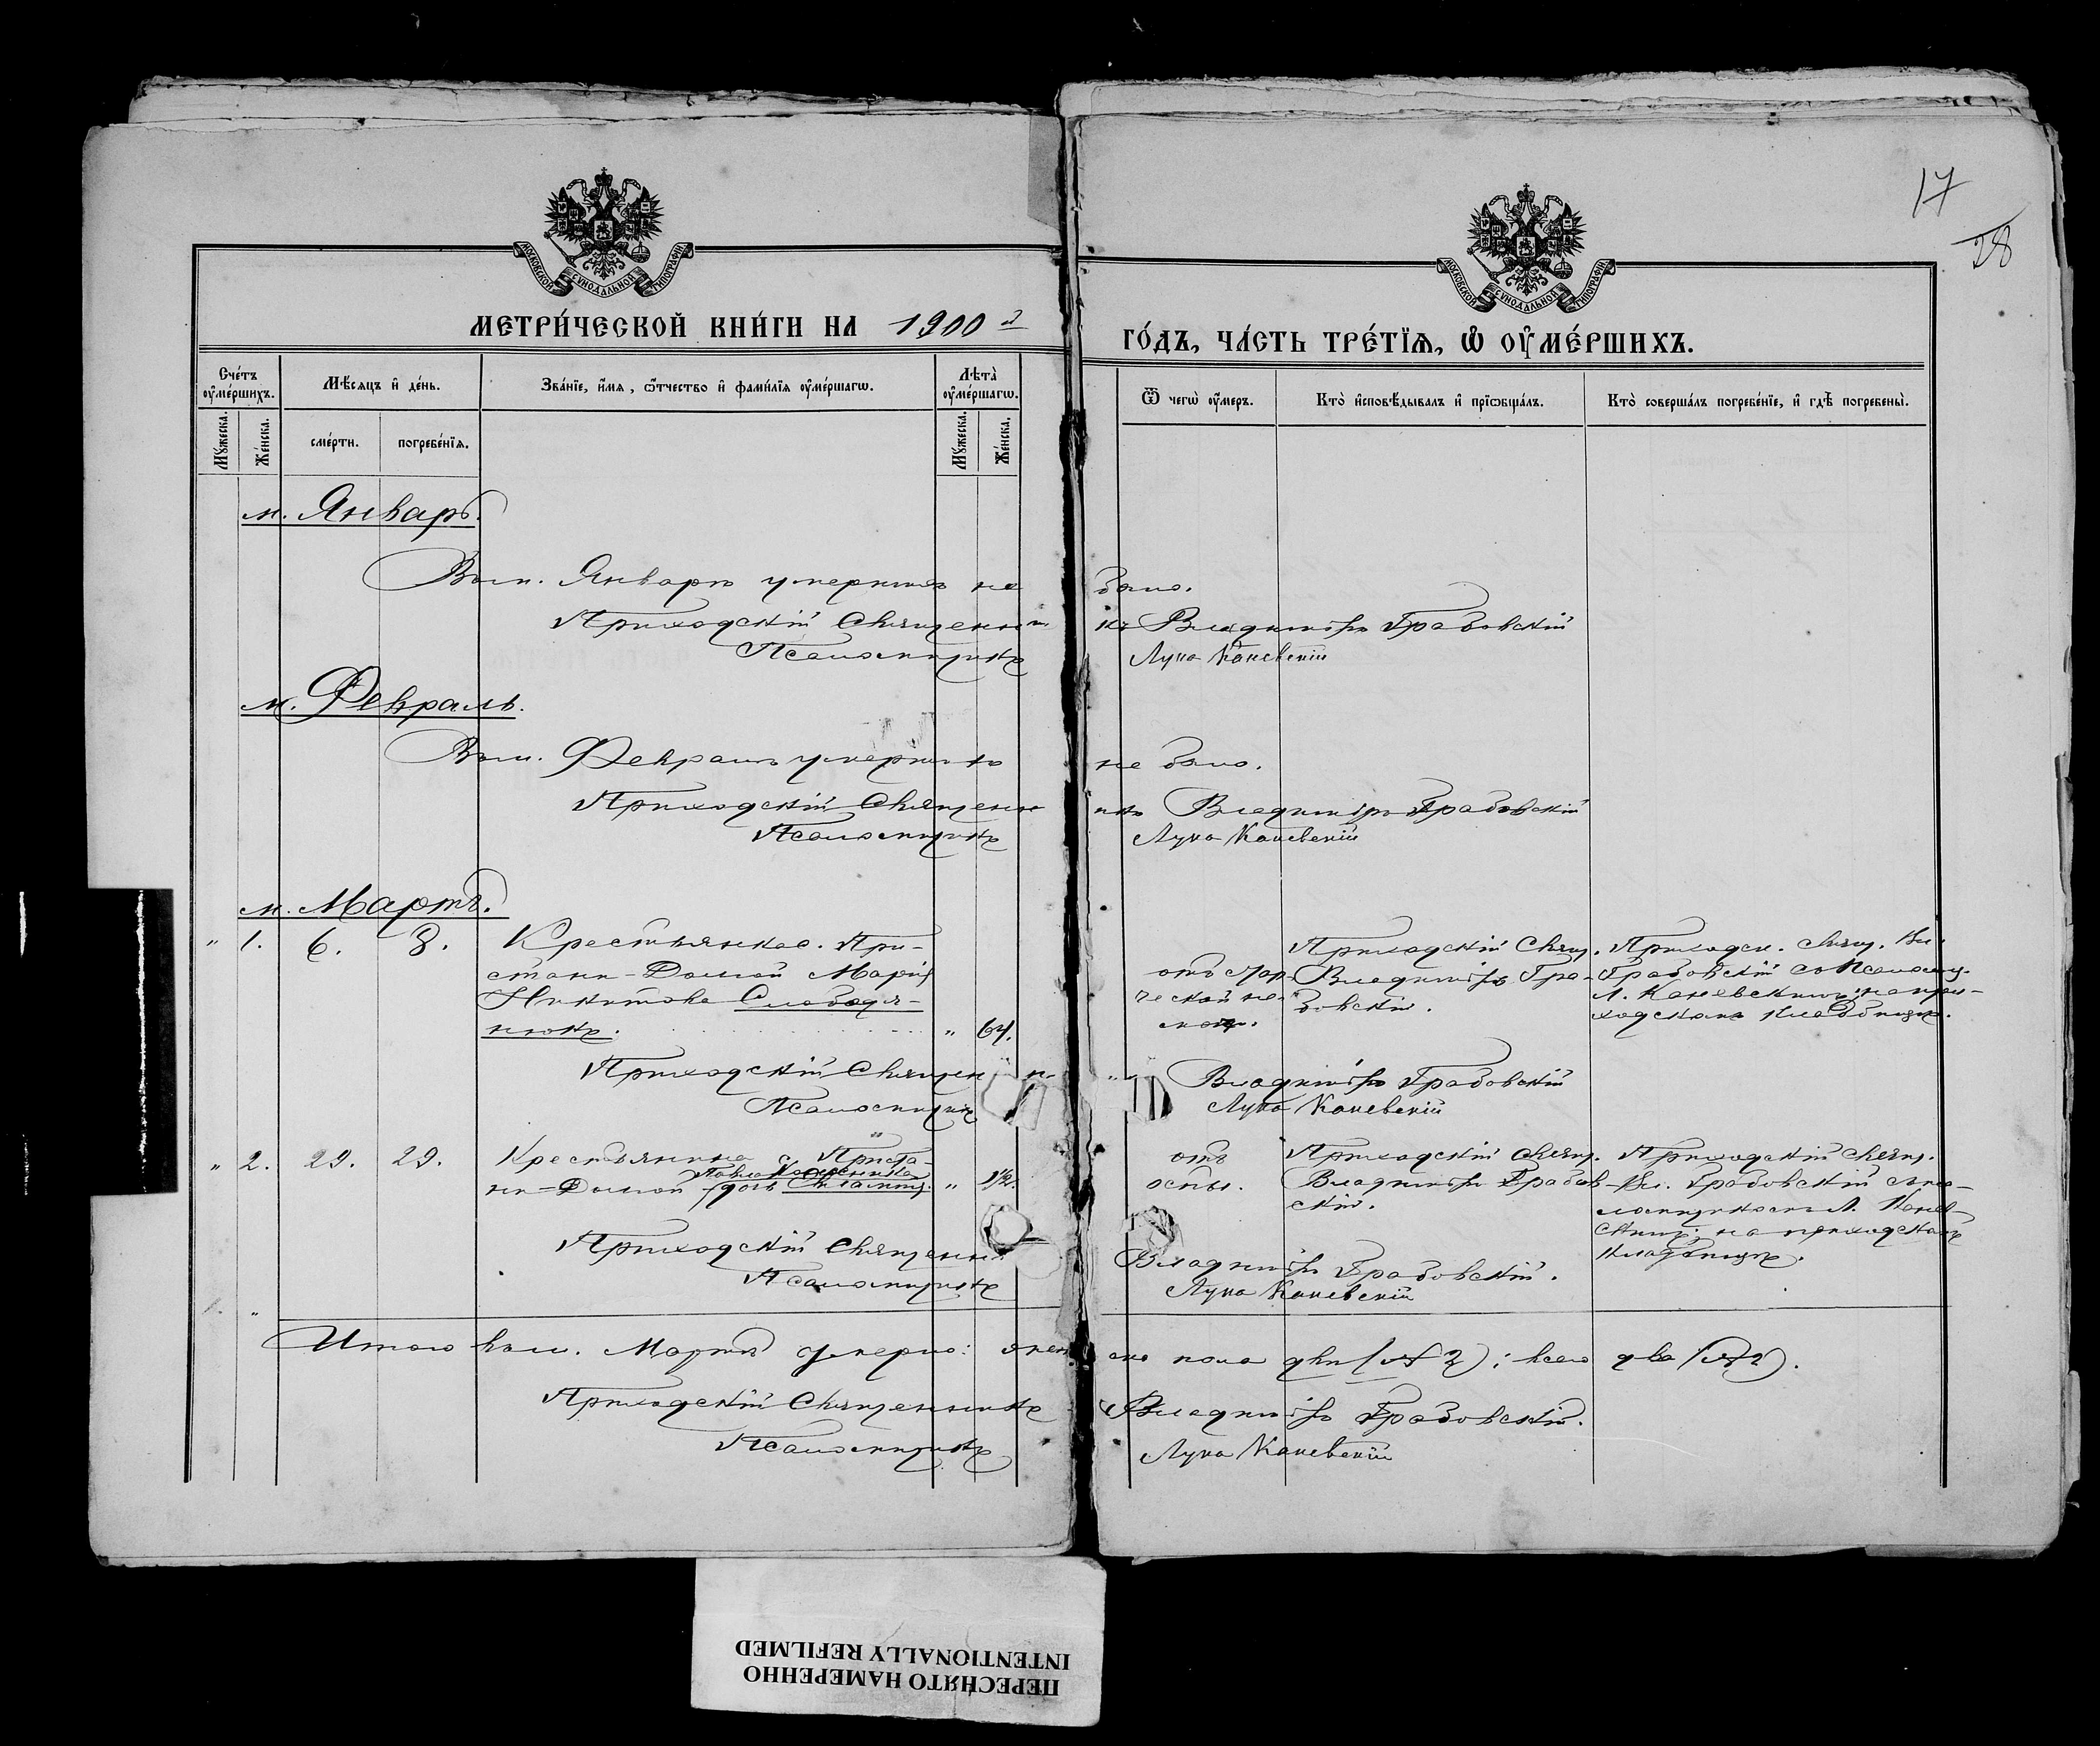 17
28
МОСКОВСКОЙ СУНОДАЛЬНОЙ ТИПОГРАФІИ
МОСКОВСКОЙ СУНОДАЛЬНОЙ ТИПОГРАФІИ
МЕТРИ́ЧЕСКОЙ КНИ́ГИ НА 1900й
ГО́ДЪ, ЧА́СТЬ ТРЕ́ТЇѦ, Ѡ ОУМЕ́РШИХЪ.
Сче́тъ оуме́ршихъ.
Мѣ́сяцъ и де́нь.
Зва́нїе, и́мя, ѿтчество и фами́лїя оуме́ршагѡ.
Лѣта̀ оуме́ршагѡ.
Ѿ чегѡ̀ оу́меръ.
Кто̀ исповѣ́дывалъ и прїѡбща́лъ.
Кто̀ соверша́лъ погребе́нїе, и гдѣ̀ погребены̀.
Мꙋ́жеска.
Же́нска.
сме́рти.
погребе́нїя.
Мꙋ́жеска.
Же́нска.
м. Январь.
Въ м. Январѣ умершихъ не было.
Приходскій Священникъ Владиміръ Грабовскій
Псаломщикъ Лука Каневскій
м. Февраль.
Въ м. Февралѣ умершихъ не было.
Приходскій Священникъ Владиміръ Грабовскій
Псаломщикъ Лука Каневскій
м. Мартъ.
" 1. 6. 8. Крестьянка с. При-
стани-Долгой Марія
Никитова Слободя-
нюкъ. " 64.
отъ стар-
ческой не-
мощи.
Приходскій Свящ.
Владиміръ Гра-
бовскій.
Приходск. Свящ. Вл.
Грабовскій съ Псаломщ.
Л. Каневскимъ; на при-
ходскомъ кладбищѣ.
Приходскій Священник " Владиміръ Грабовскій
Псаломщикъ Лука Каневскій
" 2. 29. 29. Крестьянина с. Приста-
ни-Долгой дочь " 1½.
отъ
оспы.
Приходскій Свящ.
Владиміръ Грабов-
скій.
Приходскій Свящ.
Вл. Грабовскій съ пса-
ломщикомъ Л. Канев-
скимъ; на приходскомъ
кладбищѣ.
Приходскій Священник Владиміръ Грабовскій.
Псаломщикъ Лука Каневскій
Итого въ м. Мартѣ умерло: женскаго пола двѣ (№ 2); всего два (№ 2).
Приходскій Священникъ Владиміръ Грабовскій.
Псаломщикъ Лука Каневскій
ПЕРЕСНЯТО НАМЕРЕННО
INTENTIONALLY REFILMED